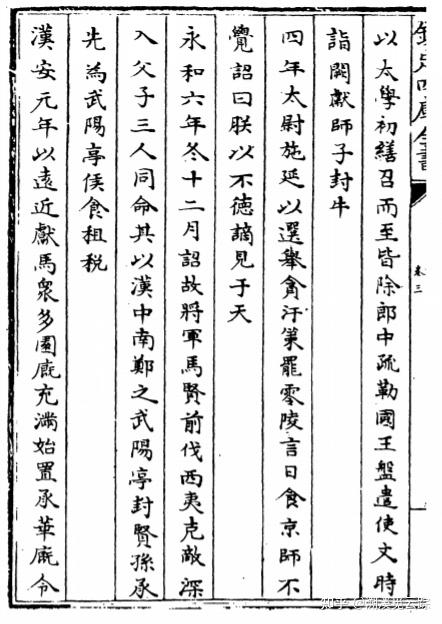 欽定四庫全書
卷三
以太學初繕召而至皆除郎中疏勒國王盤遣使文時
詣闕獻師子封牛
四年太尉施延以選舉貪汙策罷零陵言日食京師不
覺詔曰朕以不德謫見于天
永和六年冬十二月詔故將軍馬賢前伐西夷克敵深
入父子三人同命其以漢中南鄭之武陽亭封賢孫承
先為武陽亭侯食租稅
漢安元年以遠近獻馬衆多園廐充滿始置承華廐令